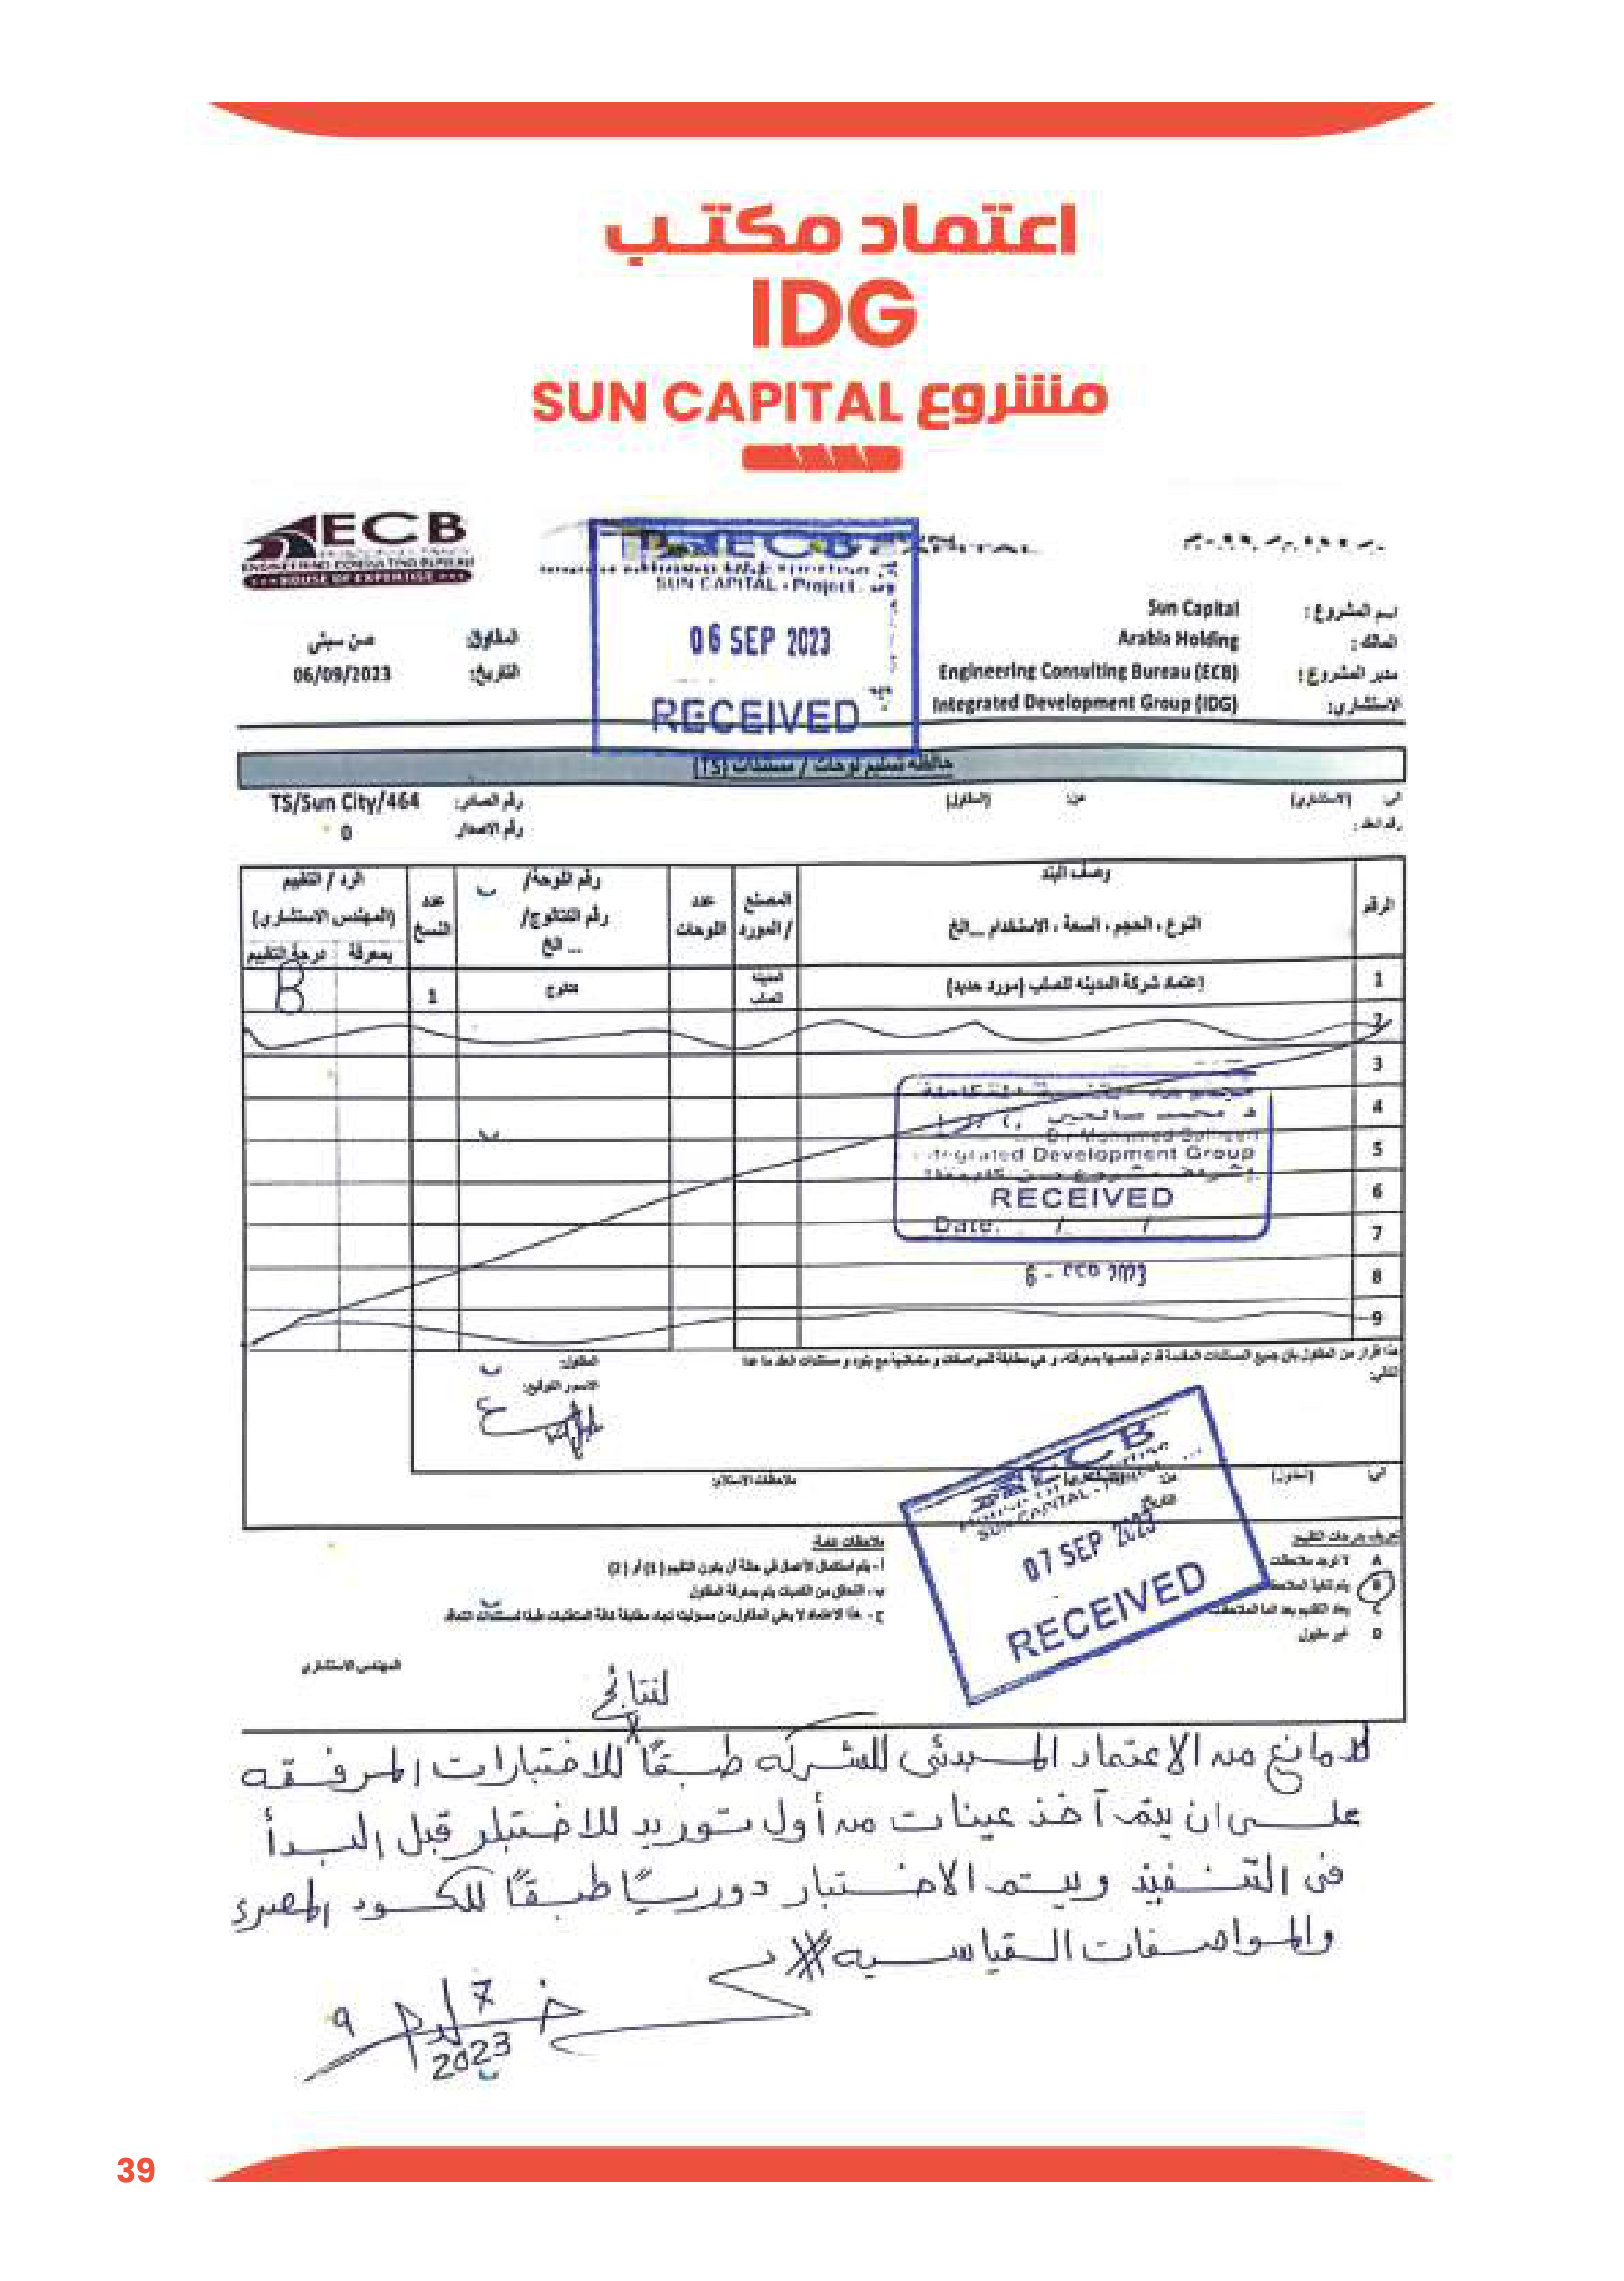 اعتماد مكتب
IDG
مشروع SUN CAPITAL
ECB
ENGINEERING CONSULTING BUREAU
HOUSE OF EXPERTISE
SUN CAPITAL - Project
06 SEP 2023
RECEIVED
اسم المشروع: Sun Capital
المالك: Arabia Holding
مدير المشروع: Engineering Consulting Bureau (ECB)
الاستشارى: Integrated Development Group (IDG)
المقاول: صن سيتى
التاريخ: 06/09/2023
حافظة تسليم لوحات / مستندات (TS)
الى (الاستشارى) من (المقاول)
رقم الصادر: TS/Sun City/464
رقم العقد:
رقم الاصدار 0
الرقم
وصف البند
النوع ، الحجم ، السعة ، الاستخدام ... الخ
المصنع / المورد
عدد اللوحات
رقم اللوحة/ رقم الكتالوج/ ... الخ
عدد النسخ
الرد / التقييم
(المهندس الاستشارى)
بمعرفة درجة التقييم
1 إعتماد شركة المدينه للصلب (مورد حديد) المدينة للصلب كتالوج 1 B
2
3
4
5
6
7
8
9
د محمد صالحين
Integrated Development Group
RECEIVED
Date: / /
هذا اقرار من المقاول بان جميع المستندات المقدمة قد تم فحصها بمعرفته، و هي مطابقة للمواصفات و متماشية مع بنود و مستندات العقد ما عدا
التالى:
المقاول:
الاسم/ التوقيع:
الى: (المقاول) من:
ملاحظات الاستلام:
التاريخ
ECB
SUN CAPITAL -
07 SEP 2023
RECEIVED
تعريف درجات التقييم
A لا توجد ملاحظات
B يتم تنفيذ
C يعاد التقديم بعد
D غير مقبول
ملاحظات عامة:
أ - يتم استكمال الأعمال في حالة أن يكون التقييم (1) أو (2)
ب - التحقق من الكميات يتم بمعرفة المقاول
ج - هذا الاعتماد لا يعفي المقاول من مسئوليته تجاه مطابقة كافة المتطلبات طبقا لمستندات التعاقد
المهندس الاستشارى
لنتائج
لا مانع من الاعتماد المبدئى للشركه طبقاً للاختبارات المرفقه
على ان يتم آخذ عينات من أول توريد للاختبار قبل البدأ
فى التنفيذ ويتم الاختبار دورياً طبقاً للكود المصرى
والمواصفات القياسيه
7
9
2023
39